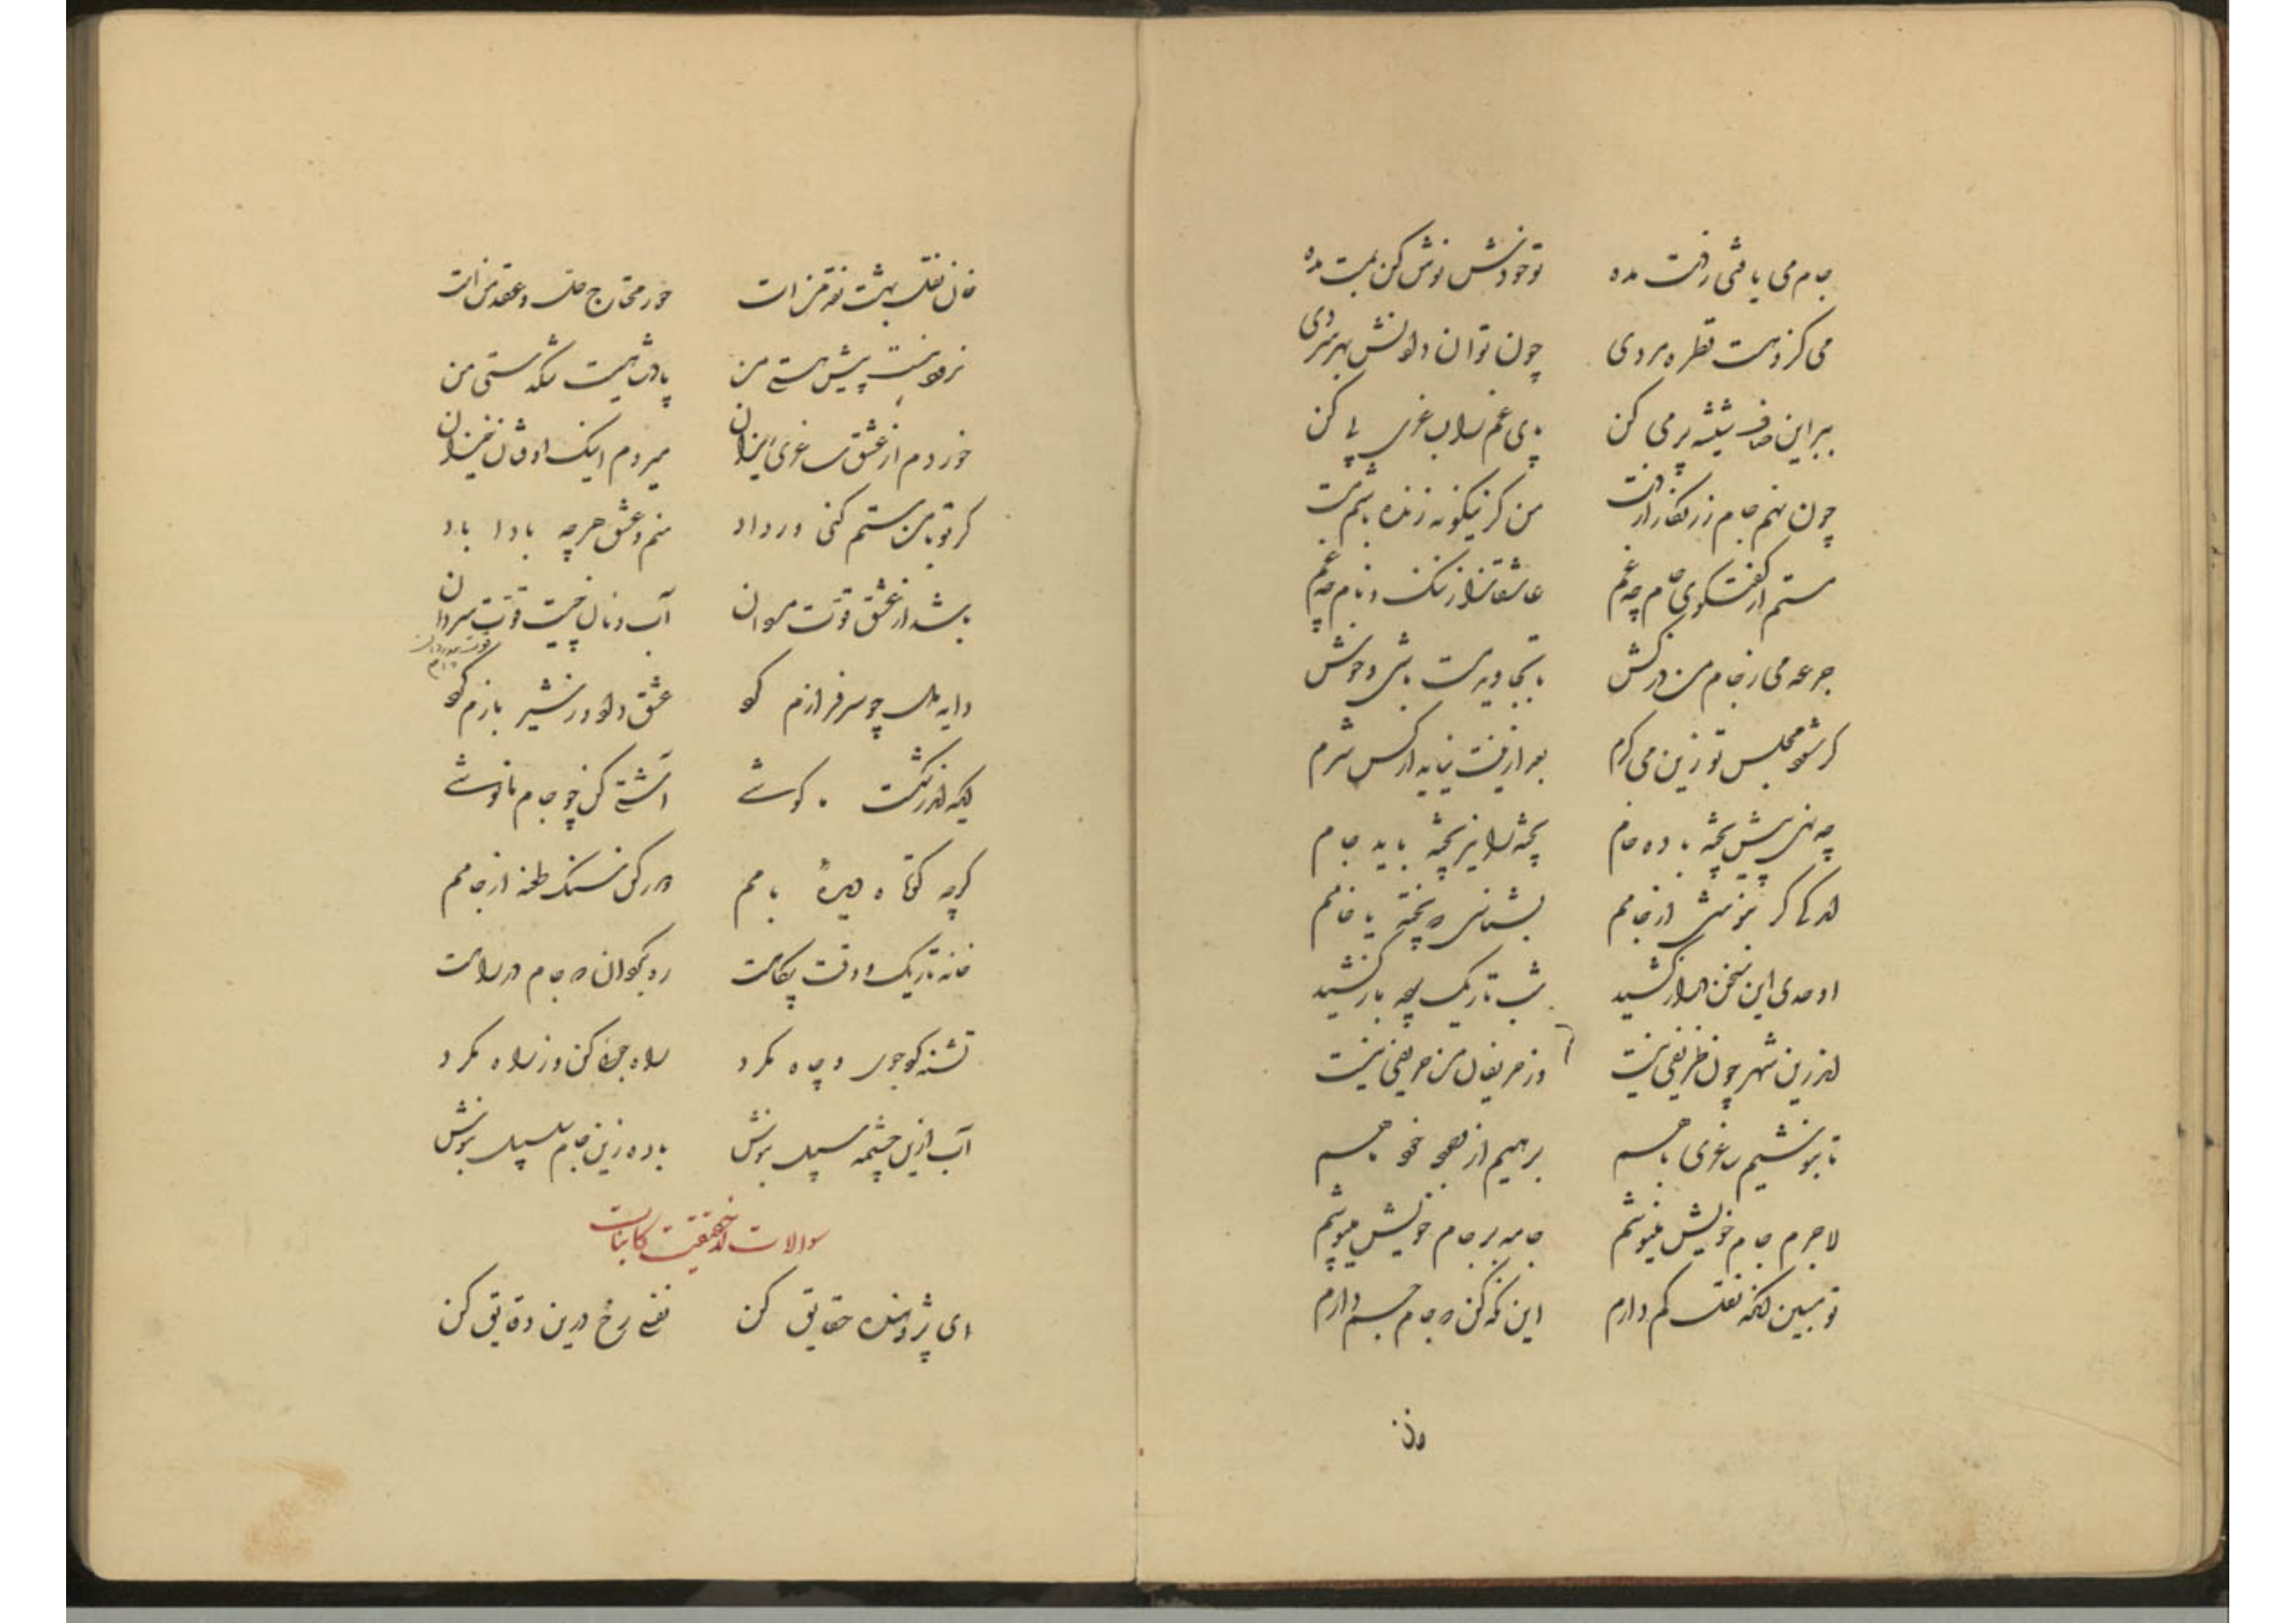 جام می یافتی ز دست مده تو خودش نوش کن بمست مده
می کزو هست قطره مردی چون توان دادنش بهر سردی
ببر این صاف شیشه پر می کن پای غم را بساغری پی کن
چون نهم جام زر نگار از دست من کزینگونه رند باشم مست
مستم از گفتگوی عام چه غم عاشقانرا ز ننگ و نام چه غم
جرعه می ز جام من درکش تا بجاوید مست باشی و خوش
گر شود مجلس تو زین می گرم بعد ازینت نیاید از کس شرم
چه نهی پیش پخته باده خام پخته را نیز پخته باید جام
اندکی گر بنوشی از جامم بشناسی که پخته یا خامم
اوحدی این سخن دراز کشید شب تاریک
اندرین شهر چون ظریفی نیست وز حریفان من حریفی نیست
تا بنوشیم ساغری با هم برهیم از وجود خود
لاجرم جام خویش مینوشم جامه بر جام خویش میپوشم
تو مبین کم که نقل کم دارم این نگه کن که جام جم دارم
نقل بهشت نقد منست حور محتاج حل و عقد منست
پیش هستی من پادشاهیست من
خوردم از عشق ساغری ریزان میروم اینک اوفتان خیزان
گر تو با من ستم کنی ور داد منم و عشق هرچه بادا باد
باشد از عشق قوت مردان آب و نان چیست قوت سردان
دایه دل چو سرفرازم کرد عشق داد و ز شیر بازم کرد
گوشی آشتی کن چو جام ما نوشی
گرچه کوتاه دیده بامم در مکن سنگ طعنه از جامم
خانه تاریک و وقت بیگاهست رو بگردان که جام در راهست
تشنه جوی و چاه مگرد راه کن وز راه مگرد
آب ازین چشمه سبیل بنوش باده زین جام سلسبیل بنوش
سوالات از حقیقت کاینات
ای پژوهنده حقایق کن نفسی رخ درین دقایق کن